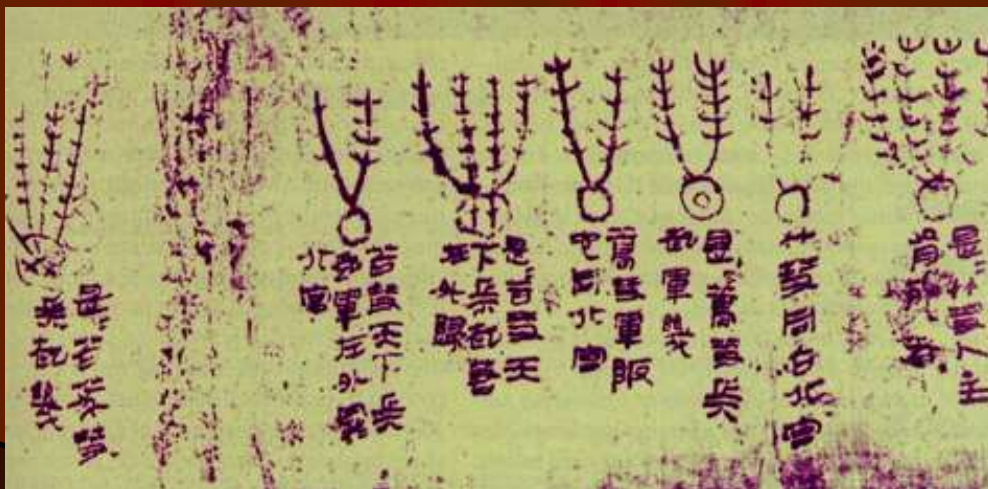 是竹彗人主
有死者
竹彗同占北宮
是蒿彗兵
起軍幾
蒿彗軍阪
它同北宮
是苫彗天
下兵起若
在外歸
苫彗天下兵
起軍在外罷
北宮
是苫茇彗
兵起幾